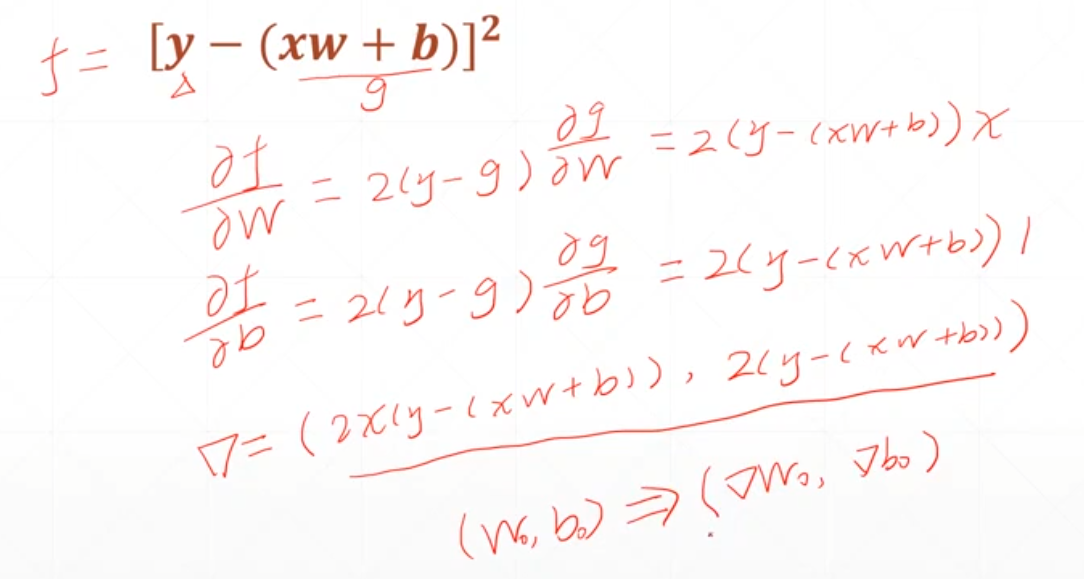 f = [y − (xw + b)]²
△ g
∂f/∂w = 2(y-g) ∂g/∂w = 2(y-(xw+b))x
∂f/∂b = 2(y-g) ∂g/∂b = 2(y-(xw+b)) 1
▽= (2x(y-(xw+b)), 2(y-(xw+b)))
(w₀, b₀) ⇒ (▽w₀, ▽b₀)